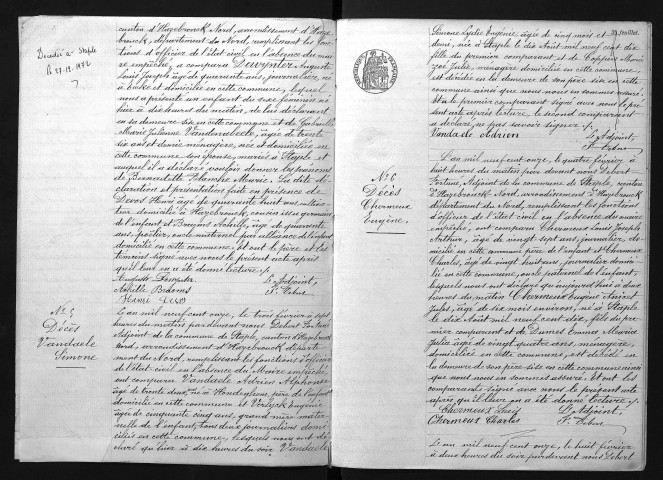 canton d'Hazebrouck Nord, arrondissement d'Haze-
brouck, département du Nord, remplissant les fonc-
tions d'officier de l'état civil en l'absence du mai-
re empêché, a comparu Duvynter August
Louis Joseph âgé de quarante ans, journalier, né
à et domicilié en cette commune, lequel
nous a présenté un enfant du sexe féminin né
hier à dix heures du matin, de lui déclarant
en sa demeure sise en cette commune et de Gabriel
Marie Julienne Vandenabeele, âgée de trente
six ans et demie ménagère, née et domiciliée en
cette commune son épouse, mariés à Staple et
auquel il a déclaré vouloir donner les prénoms
de Bernadette Blanche Marie. La dite dé-
claration et présentation faite en présence de
Devos Henri âgé de quarante huit ans cultiva-
teur domicilié à Hazebrouck, cousin issu germain
de l'enfant et Achille, âgé de quarante
ans, postier, oncle maternel par alliance de l'enfant
domicilié en cette commune, et ont le père et les
témoins signé avec nous le présent acte après
qu'il leur en a été donné lecture./.
L'Adjoint,
Achille
Henri Devos
Décédée à Staple
Le 27.12.1972
N° 5
Décès
Vandaele
Simone
L'an mil neuf cent onze, le trois février à sept
heures du matin par devant nous Debert Fortuné
Adjoint de la commune de Staple, canton d'Hazebrouck
Nord, arrondissement d'Hazebrouck, départe-
ment du Nord, remplissant les fonctions d'officier
de l'état-civil en l'absence du Maire empêché,
ont comparu Vandaele Adrien Alphonse
âgé de trente deux, né à Hondeghem, père de l'enfant
domicilié en cette commune et Verlyck Eugénie
âgée de cinquante cinq ans, grand-mère mater-
nelle de l'enfant, tous deux journaliers domi-
ciliés en cette commune, lesquels nous ont dé-
claré qu'hier à dix heures du soir Vandaele
Simone Lydie Eugénie, âgée de cinq mois et
demi, née à Staple le dix Août mil neuf cent dix
fille du premier comparant et de Coppin Marie
Zoé Julie, ménagère domiciliée en cette commune,
est décédée en la demeure de son père sise en cette
commune ainsi que nous nous en sommes assuré.
Et a le premier comparant signé avec nous le pré-
sent acte après lecture, le second comparant
a déclaré ne pas savoir signer./.
Vandaele Adrien L'Adjoint,
F. Debert
N° 6
Décès
Chermeux
Eugène.
L'an mil neuf cent onze, le quatre février à
huit heures du matin par devant nous Debert
Fortuné, Adjoint de la commune de Staple, canton
d'Hazebrouck Nord, arrondissement d'Hazebrouck
département du Nord, remplissant les fonctions
d'officier de l'état civil en l'absence du maire
empêché, ont comparu Chermeux Louis Joseph
Arthur, âgé de vingt sept ans, journalier, do-
micilié en cette commune père de l'enfant et Chermeux
Charles, âgé de vingt huit ans, journalier domici-
lié en cette commune, oncle paternel de l'enfant,
lesquels nous ont déclaré qu'aujourd'hui à deux
heures du matin Chermeux Eugène
Jules, âgé de six mois environ, né à Staple
le dix Août mil neuf cent dix, fils du pre-
mier comparant et de Dumez Emma Maria
Julie âgée de vingt quatre ans, ménagère,
domiciliée en cette commune, est décédé en
la demeure de son père sise en cette commune ainsi
que nous nous en sommes assuré. Et ont les
comparants signé avec nous le présent acte
après qu'il leur en a été donné lecture./.
Chermeux Louis L'Adjoint,
Chermeux Charles F. Debert
L'an mil neuf cent onze, le huit février
à deux heures du soir par devant nous Debert